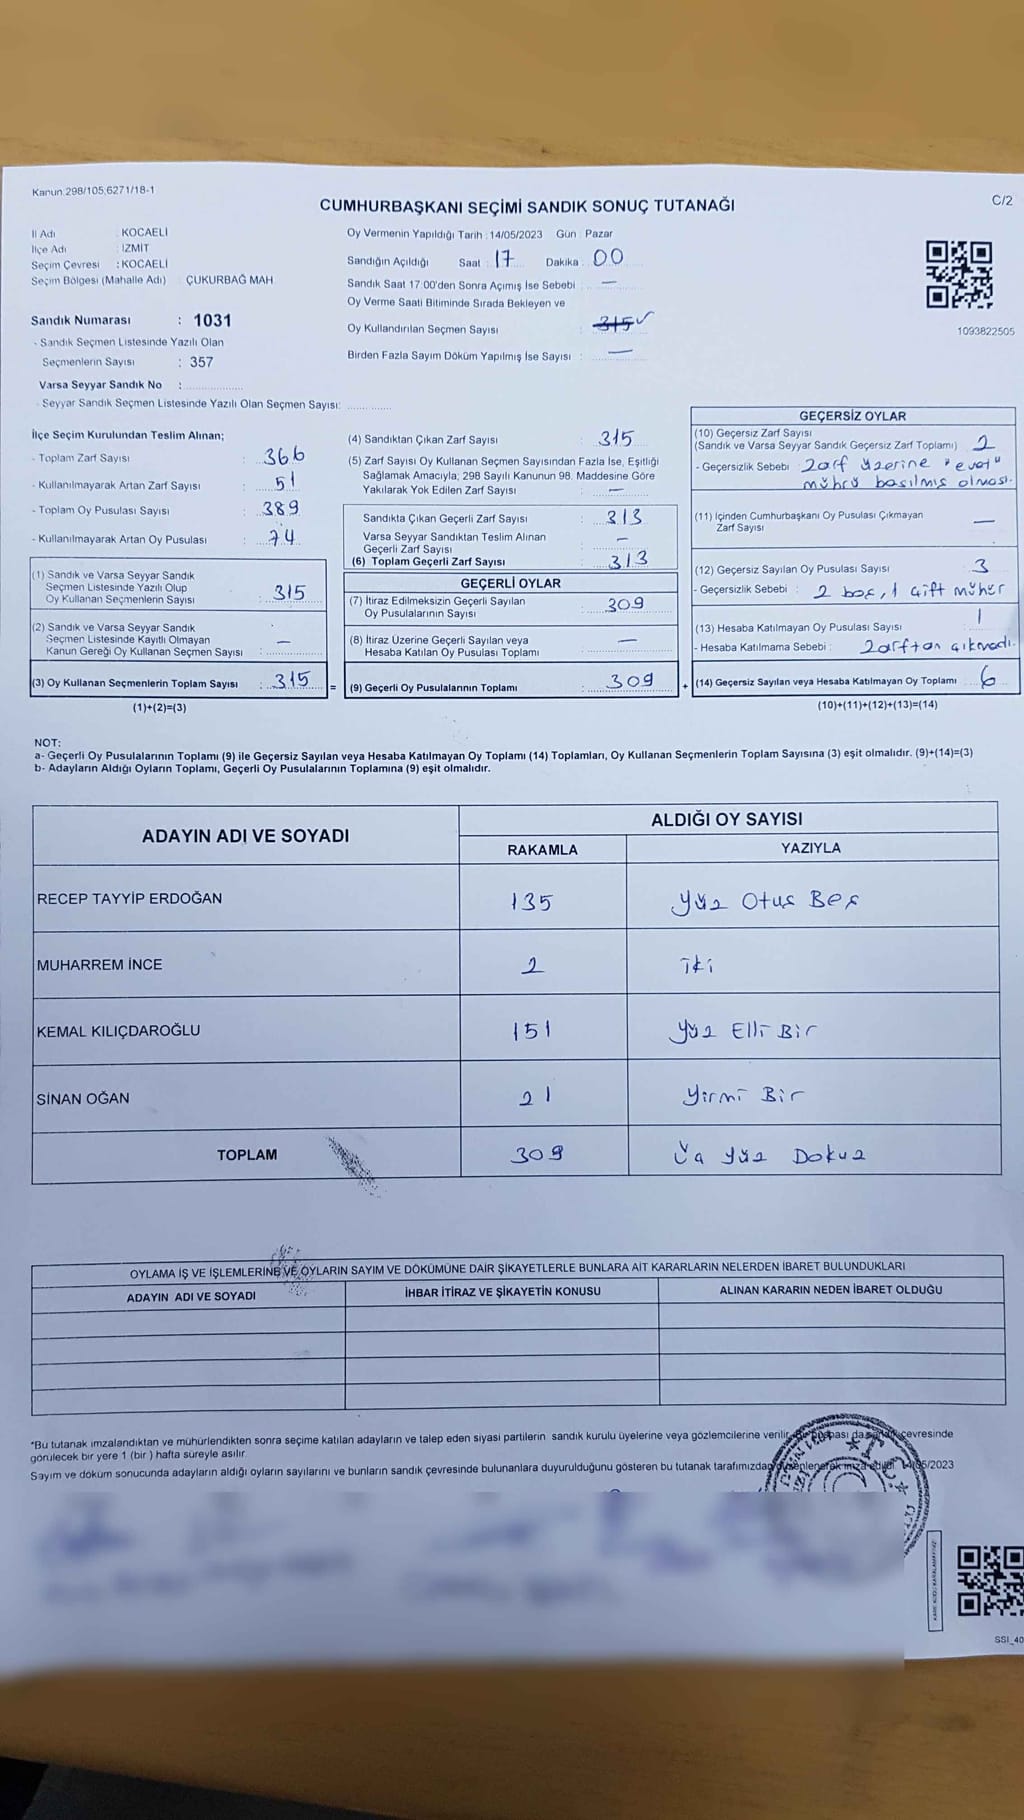 Kanun.298/105,6271/18-1
C/2
CUMHURBAŞKANI SEÇİMİ SANDIK SONUÇ TUTANAĞI
İl Adı : KOCAELİ
İlçe Adı : İZMİT
Seçim Çevresi : KOCAELİ
Seçim Bölgesi (Mahalle Adı) : ÇUKURBAĞ MAH
Sandık Numarası : 1031
- Sandık Seçmen Listesinde Yazılı Olan
Seçmenlerin Sayısı : 357
Varsa Seyyar Sandık No :
- Seyyar Sandık Seçmen Listesinde Yazılı Olan Seçmen Sayısı:
Oy Vermenin Yapıldığı Tarih : 14/05/2023 Gün : Pazar
Sandığın Açıldığı Saat : 17 Dakika : 00
Sandık Saat 17:00'den Sonra Açımış İse Sebebi : —
Oy Verme Saati Bitiminde Sırada Bekleyen ve
Oy Kullandırılan Seçmen Sayısı : 315
Birden Fazla Sayım Döküm Yapılmış İse Sayısı : —
1093822505
İlçe Seçim Kurulundan Teslim Alınan;
- Toplam Zarf Sayısı : 366
- Kullanılmayarak Artan Zarf Sayısı : 51
- Toplam Oy Pusulası Sayısı : 389
- Kullanılmayarak Artan Oy Pusulası : 74
(1) Sandık ve Varsa Seyyar Sandık
Seçmen Listesinde Yazılı Olup
Oy Kullanan Seçmenlerin Sayısı : 315
(2) Sandık ve Varsa Seyyar Sandık
Seçmen Listesinde Kayıtlı Olmayan
Kanun Gereği Oy Kullanan Seçmen Sayısı : —
(3) Oy Kullanan Seçmenlerin Toplam Sayısı : 315
(1)+(2)=(3)
(4) Sandıktan Çıkan Zarf Sayısı : 315
(5) Zarf Sayısı Oy Kullanan Seçmen Sayısından Fazla İse, Eşitliği
Sağlamak Amacıyla; 298 Sayılı Kanunun 98. Maddesine Göre
Yakılarak Yok Edilen Zarf Sayısı : —
Sandıkta Çıkan Geçerli Zarf Sayısı : 313
Varsa Seyyar Sandıktan Teslim Alınan
Geçerli Zarf Sayısı : —
(6) Toplam Geçerli Zarf Sayısı : 313
GEÇERLİ OYLAR
(7) İtiraz Edilmeksizin Geçerli Sayılan
Oy Pusulalarının Sayısı : 309
(8) İtiraz Üzerine Geçerli Sayılan veya
Hesaba Katılan Oy Pusulası Toplamı : —
= (9) Geçerli Oy Pusulalarının Toplamı : 309
GEÇERSİZ OYLAR
(10) Geçersiz Zarf Sayısı
(Sandık ve Varsa Seyyar Sandık Geçersiz Zarf Toplamı) 2
- Geçersizlik Sebebi : Zarf üzerine "evet"
mührü basılmış olması.
(11) İçinden Cumhurbaşkanı Oy Pusulası Çıkmayan
Zarf Sayısı —
(12) Geçersiz Sayılan Oy Pusulası Sayısı : 3
- Geçersizlik Sebebi : 2 boş, 1 çift mühür
(13) Hesaba Katılmayan Oy Pusulası Sayısı : 1
- Hesaba Katılmama Sebebi : Zarftan çıkmadı.
+ (14) Geçersiz Sayılan veya Hesaba Katılmayan Oy Toplamı : 6
(10)+(11)+(12)+(13)=(14)
NOT:
a- Geçerli Oy Pusulalarının Toplamı (9) ile Geçersiz Sayılan veya Hesaba Katılmayan Oy Toplamı (14) Toplamları, Oy Kullanan Seçmenlerin Toplam Sayısına (3) eşit olmalıdır. (9)+(14)=(3)
b- Adayların Aldığı Oyların Toplamı, Geçerli Oy Pusulalarının Toplamına (9) eşit olmalıdır.
ADAYIN ADI VE SOYADI
ALDIĞI OY SAYISI
RAKAMLA YAZIYLA
RECEP TAYYİP ERDOĞAN 135 Yüz Otuz Beş
MUHARREM İNCE 2 İki
KEMAL KILIÇDAROĞLU 151 Yüz Elli Bir
SİNAN OĞAN 21 Yirmi Bir
TOPLAM 309 Üç Yüz Dokuz
OYLAMA İŞ VE İŞLEMLERİNE VE OYLARIN SAYIM VE DÖKÜMÜNE DAİR ŞİKAYETLERLE BUNLARA AİT KARARLARIN NELERDEN İBARET BULUNDUKLARI
ADAYIN ADI VE SOYADI İHBAR İTİRAZ VE ŞİKAYETİN KONUSU ALINAN KARARIN NEDEN İBARET OLDUĞU
*Bu tutanak imzalandıktan ve mühürlendikten sonra seçime katılan adayların ve talep eden siyasi partilerin sandık kurulu üyelerine veya gözlemcilerine verilir. çevresinde
görülecek bir yere 1 (bir) hafta süreyle asılır.
Sayım ve döküm sonucunda adayların aldığı oyların sayılarını ve bunların sandık çevresinde bulunanlara duyurulduğunu gösteren bu tutanak tarafımızdan düzenlenerek imza edildi. 14/05/2023
T.C.
SSI_40